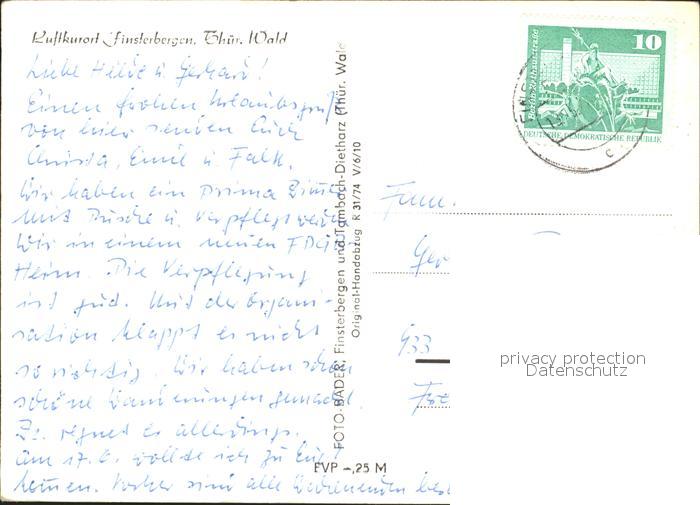 Luftkurort Finsterbergen, Thür. Wald
Liebe Hilde u Gerhard!
Einen frohen Urlaubsgruß
von hier senden Euch
Christa, Emil u Falk.
Wir haben ein Prima Zimmer
mit Dusche u. Verpflegt werden
Wir in einem neuen FDGB
Heim. Die Verpflegung
ist gut. Mit der Organi-
sation klappt es nicht
so richtig. Wir haben schon
schöne Wanderungen gemacht.
Zz. regnet es allerdings.
Am 17.6. wollte ich zu Euch
kommen. Vorher sind alle Wochenenden
FOTO-BADER, Finsterbergen und Tambach-Dietharz (Thür. Wald
Original-Handabzug R 31/74 V/6/10
EVP -,25 M
10
DEUTSCHE DEMOKRATISCHE REPUBLIK
c
Fam.
Ger
933
privacy protection
Datenschutz